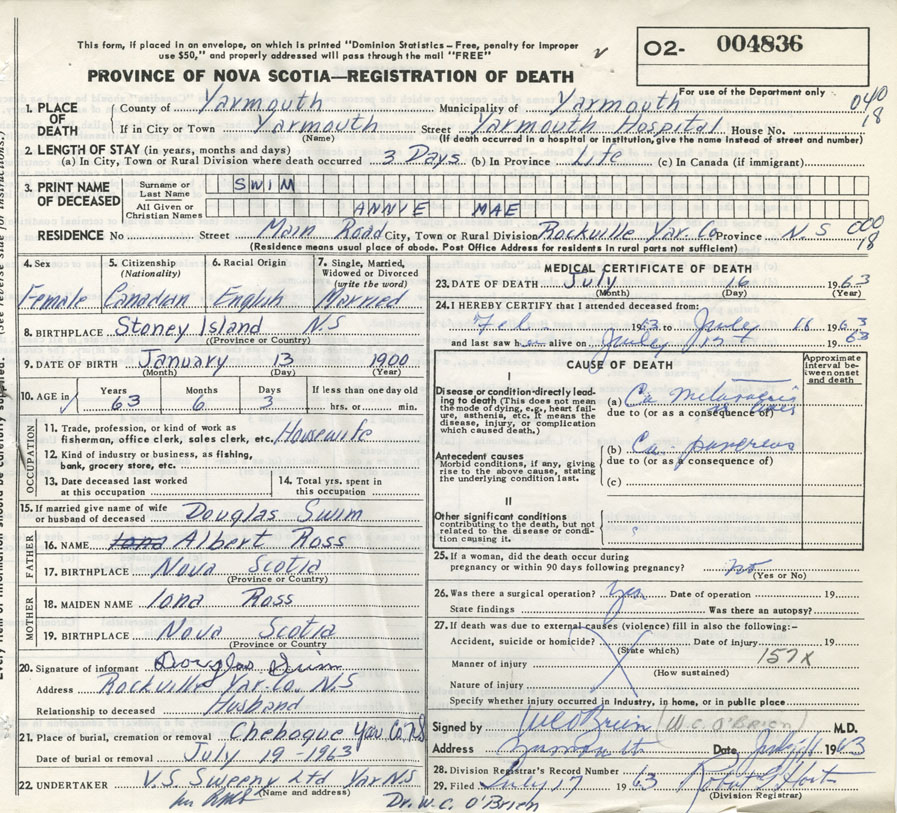 This form, if placed in an envelope, on which is printed "Dominion Statistics – Free, penalty for improper
use $50," and properly addressed will pass through the mail "FREE"
O2- 004836
For use of the Department only
PROVINCE OF NOVA SCOTIA—REGISTRATION OF DEATH
1. PLACE OF DEATH
County of Yarmouth Municipality of Yarmouth 040
If in City or Town Yarmouth Street Yarmouth Hospital House No. 18
(Name) (If death occurred in a hospital or institution, give the name instead of street and number)
2. LENGTH OF STAY (in years, months and days)
(a) In City, Town or Rural Division where death occurred 3 Days (b) In Province Life (c) In Canada (if immigrant)
3. PRINT NAME OF DECEASED
Surname or Last Name SWIM
All Given or Christian Names ANNIE MAE
RESIDENCE No Street Main Road City, Town or Rural Division Rockville Yar. Co Province N.S 000
18
(Residence means usual place of abode. Post Office Address for residents in rural parts not sufficient)
4. Sex
Female
5. Citizenship (Nationality)
Canadian
6. Racial Origin
English
7. Single, Married, Widowed or Divorced (write the word)
Married
8. BIRTHPLACE Stoney Island N S
(Province or Country)
9. DATE OF BIRTH January 13 1900
(Month) (Day) (Year)
10. AGE in Years Months Days If less than one day old
63 6 3 hrs. or min.
OCCUPATION
11. Trade, profession, or kind of work as
fisherman, office clerk, sales clerk, etc. Housewife
12. Kind of industry or business, as fishing,
bank, grocery store, etc.
13. Date deceased last worked
at this occupation
14. Total yrs. spent in
this occupation
15. If married give name of wife
or husband of deceased Douglas Swim
FATHER
16. NAME Iona Albert Ross
17. BIRTHPLACE Nova Scotia
(Province or Country)
MOTHER
18. MAIDEN NAME Iona Ross
19. BIRTHPLACE Nova Scotia
(Province or Country)
20. Signature of informant Douglas Swim
Address Rockville Yar. Co. N.S
Relationship to deceased Husband
21. Place of burial, cremation or removal Chebogue Yar Co N.S
Date of burial or removal July 19 - 1963
22. UNDERTAKER V.S. Sweeny Ltd Yar N.S
(Name and address)
Dr. W.C. O'Brien
MEDICAL CERTIFICATE OF DEATH
23. DATE OF DEATH July 16 1963
(Month) (Day) (Year)
24. I HEREBY CERTIFY that I attended deceased from:
Feb 1963 to July 16 1963
and last saw her alive on July 1963
CAUSE OF DEATH
Approximate interval between onset and death
I
Disease or condition directly leading to death (This does not mean the mode of dying, e.g., heart failure, asthenia, etc. It means the disease, injury, or complication which caused death.)
(a) Ca
due to (or as a consequence of)
Antecedent causes
Morbid conditions, if any, giving rise to the above cause, stating the underlying condition last.
(b) Ca pancreas
due to (or as a consequence of)
(c)
II
Other significant conditions
contributing to the death, but not related to the disease or condition causing it.
25. If a woman, did the death occur during
pregnancy or within 90 days following pregnancy? no
(Yes or No)
26. Was there a surgical operation? yes Date of operation 19
State findings Was there an autopsy?
27. If death was due to external causes (violence) fill in also the following:-
Accident, suicide or homicide? Date of injury 19
(State which) 157X
Manner of injury
(How sustained)
Nature of injury
Specify whether injury occurred in industry, in home, or in public place
Signed by WC O'Brien (W.C. O'BRIEN) M.D.
Address Yarmouth Date July 1963
28. Division Registrar's Record Number
29. Filed July 17 1963
(Division Registrar)